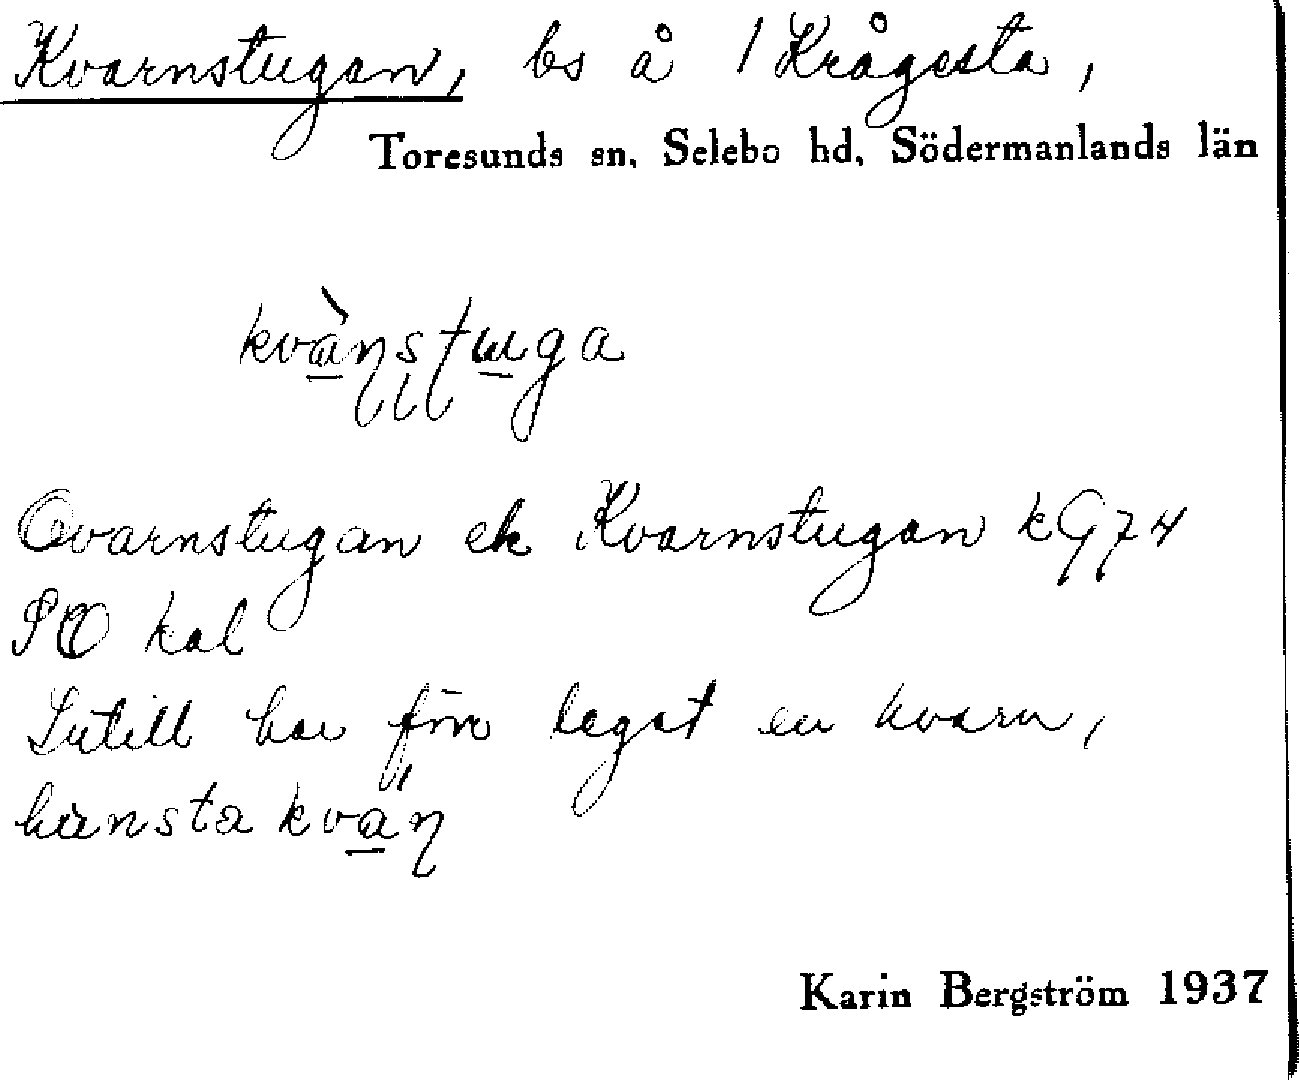 Kvarnstugan, bs å 1 Krågesta,
Toresunds sn, Selebo hd, Södermanlands län
kvànstuga
Qvarnstugan ek Kvarnstugan kG74
SO kal
Intill har förr legat en kvarn,
hünsta kvan
Karin Bergström 1937